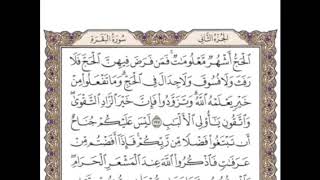 الجزء الثاني سورة البقرة
الحج أشهر معلومات فمن فرض فيهن الحج فلا
رفث ولا فسوق ولا جدال في الحج وما تفعلوا من
خير يعلمه الله وتزودوا فإن خير الزاد التقوى
واتقون يا أولي الألباب ليس عليكم جناح
أن تبتغوا فضلا من ربكم فإذا أفضتم من
عرفات فاذكروا الله عند المشعر الحرام